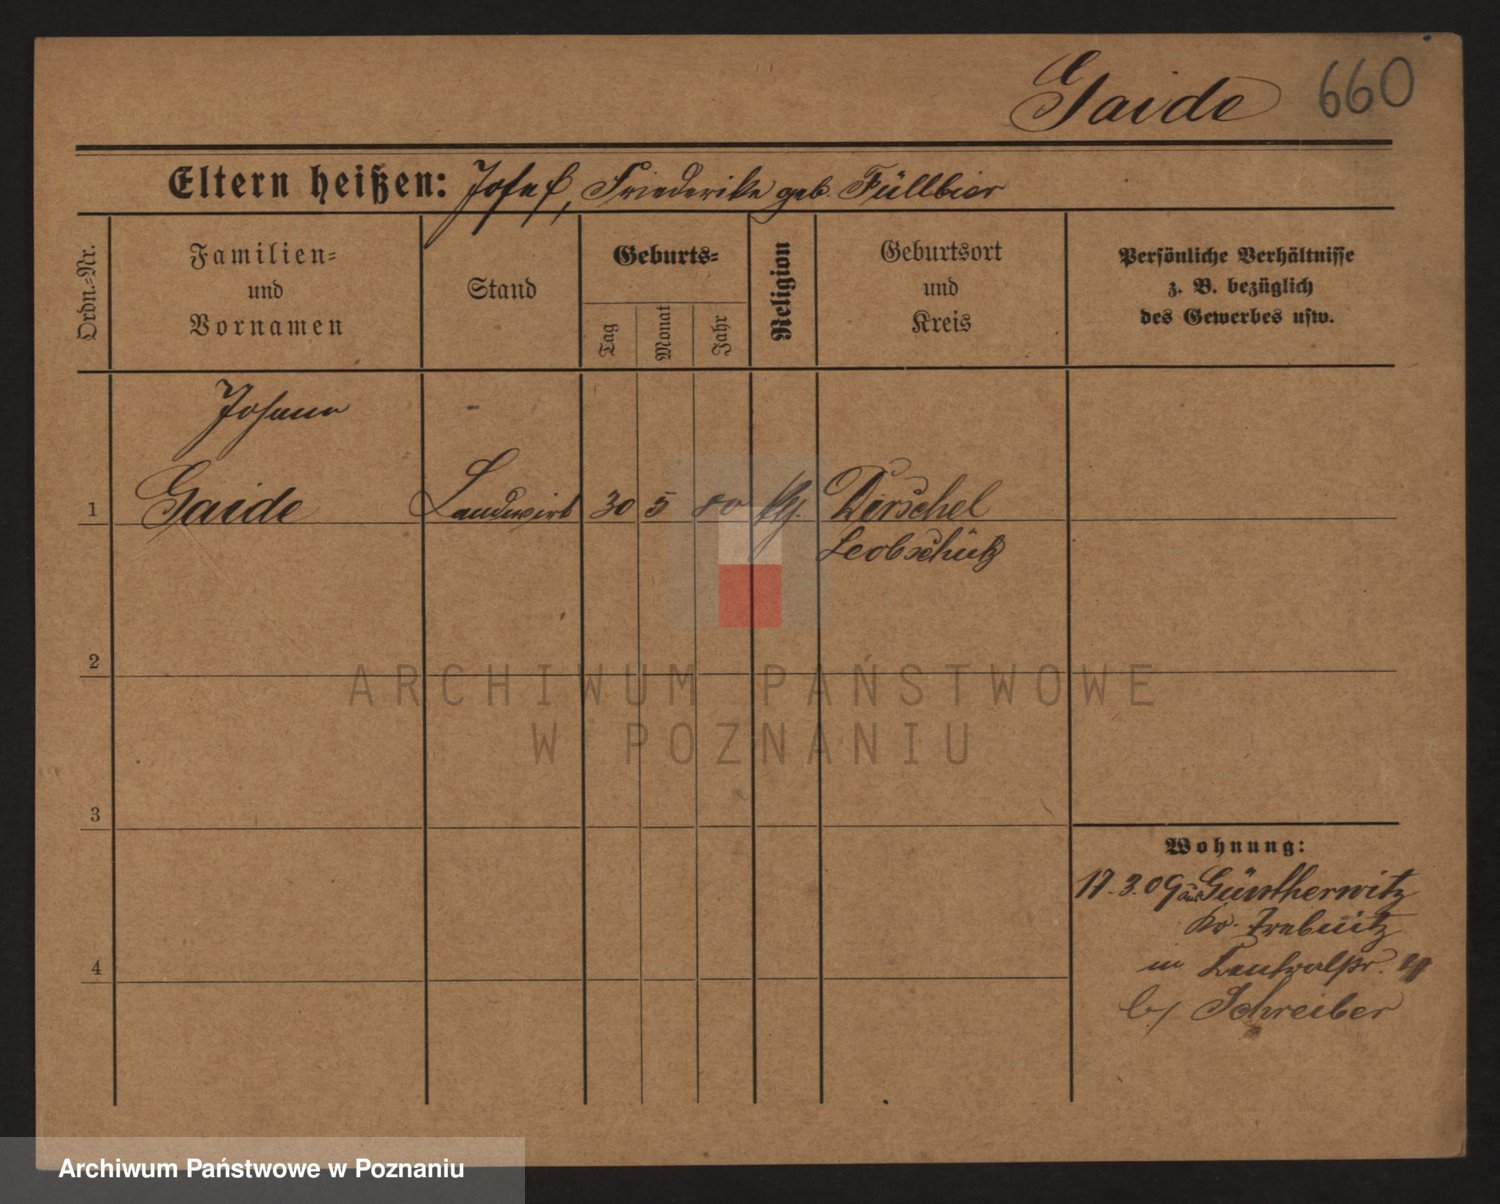 Gaide 660
Eltern heißen: Josef, Friederike geb. Füllbier
Ordn.-Nr.
Familien-
und
Vornamen
Stand
Geburts-
Tag
Monat
Jahr
Religion
Geburtsort
und
Kreis
Persönliche Verhältnisse
z. B. bezüglich
des Gewerbes usw.
Johann
1 Gaide Landwirt 30 5 80 Dirschel
Leobschütz
2
ARCHIWUM PAŃSTWOWE
W POZNANIU
3
4
Wohnung:
17.3.09 Güntherwitz
Kr. Trebnitz
in
b/ Schreiber
Archiwum Państwowe w Poznaniu